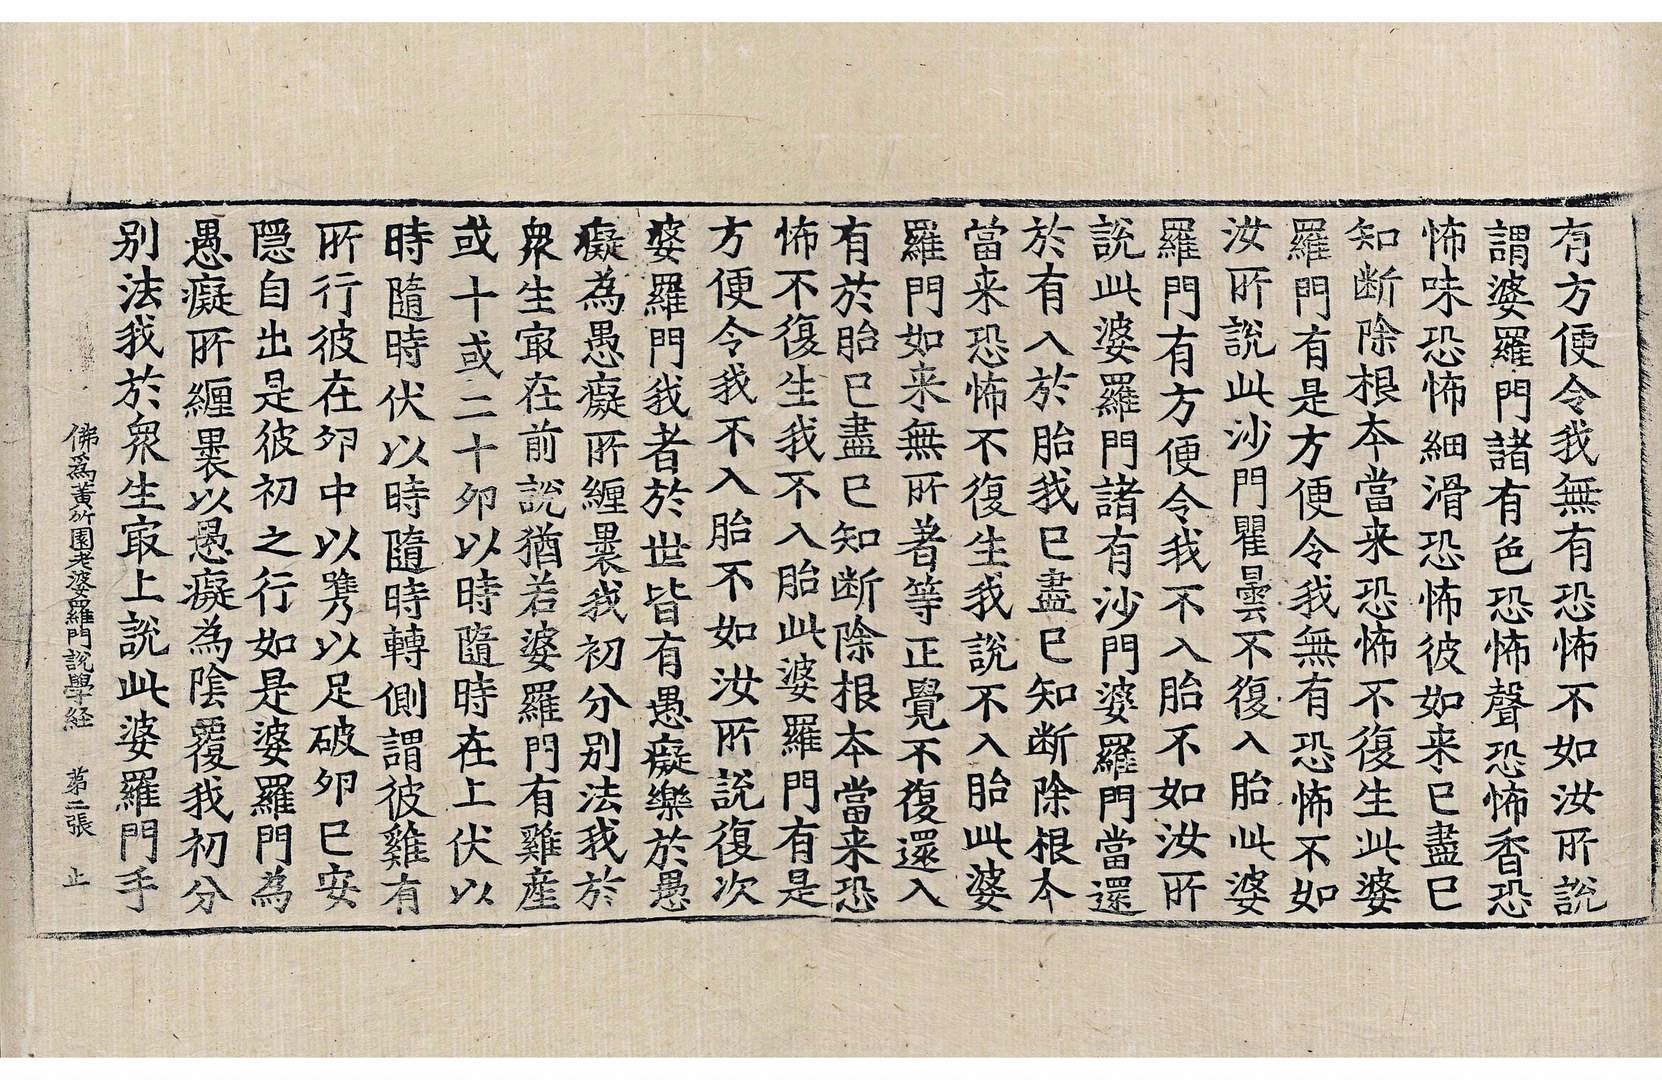 有方便令我無有恐怖不如汝所說
謂婆羅門諸有色恐怖聲恐怖香恐
怖味恐怖細滑恐怖彼如来已盡已
知断除根本當来恐怖不復生此婆
羅門有是方便令我無有恐怖不如
汝所說此沙門瞿曇不復入胎此婆
羅門有方便令我不入胎不如汝所
說此婆羅門諸有沙門婆羅門當還
於有入於胎我已盡已知断除根本
當来恐怖不復生我說不入胎此婆
羅門如来無所著等正覺不復還入
有於胎已盡已知断除根本當来恐
怖不復生我不入胎此婆羅門有是
方便令我不入胎不如汝所說復次
婆羅門我者於世皆有愚癡樂於愚
癡為愚癡所纏裹我初分别法我於
衆生㝡在前說猶若婆羅門有雞産
或十或二十卵以時隨時在上伏以
時隨時伏以時隨時轉側謂彼雞有
所行彼在卵中以㨗以足破卵已安
隠自出是彼初之行如是婆羅門為
愚癡所纏裹以愚癡為陰覆我初分
别法我於衆生㝡上說此婆羅門手
佛爲黃竹園老婆羅門說學経 第二張 止